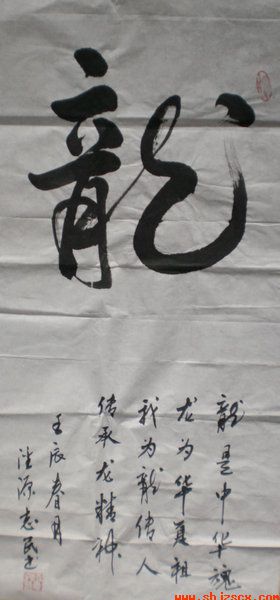 龍
龍是中华魂
龙为华夏祖
我为龍传人
传承龙精神
壬辰春月
志民书
www.shjzscx.com